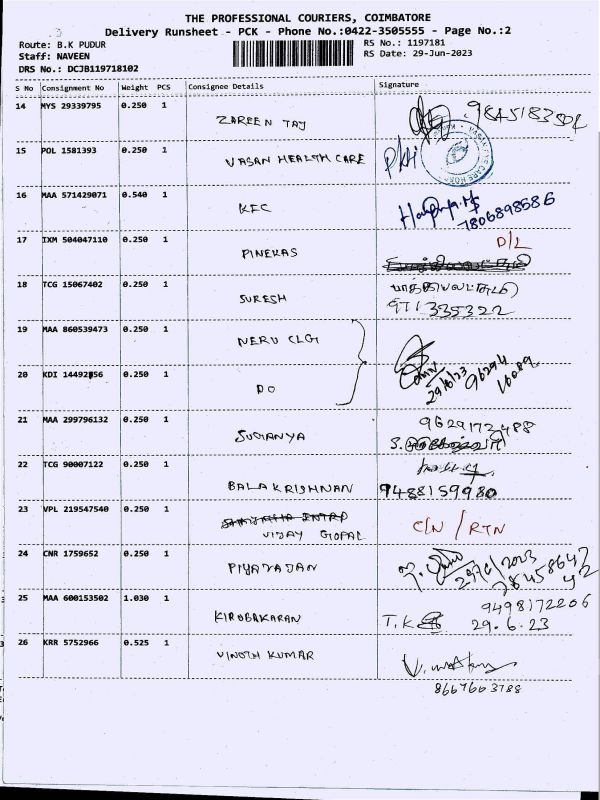 THE PROFESSIONAL COURIERS, COIMBATORE
Delivery Runsheet - PCK - Phone No.:0422-3505555 - Page No.:2
Route: B.K PUDUR
RS No.: 1197181
Staff: NAVEEN
RS Date: 29-Jun-2023
DRS No.: DCJB119718102
S No Consignment No Weight PCS Consignee Details Signature
14 MYS 29339795 0.250 1 ZAREEN TAJ
15 POL 1581393 0.250 1 VASAN HEALTH CARE
16 MAA 571429071 0.540 1 KFC 7806898686
17 IXM 504047110 0.250 1 PINEKAS D/L
18 TCG 15067402 0.250 1 SURESH 971335322
19 MAA 860539473 0.250 1 NERU CLG
20 KDI 14492856 0.250 1 DO 29/6/23
21 MAA 299796132 0.250 1 SUGANYA 9629172488
22 TCG 90007122 0.250 1 BALAKRISHNAN 9488159980
23 VPL 219547540 0.250 1 VIJAY GOPAL C/N / RTN
24 CNR 1759652 0.250 1 PIYARAJAN 29/6/2023
25 MAA 600153502 1.030 1 KIRUBAKARAN T.K 9498172206
29.6.23
26 KRR 5752966 0.525 1 VINOTH KUMAR
8667663788